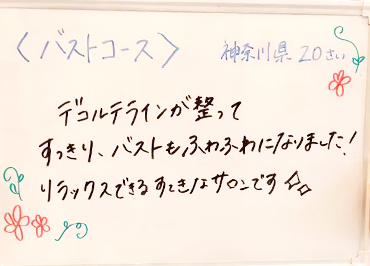 〈バストコース〉 神奈川県 20さい
デコルテラインが整って
すっきり、バストもふわふわになりました!
リラックスできるすてきなサロンです